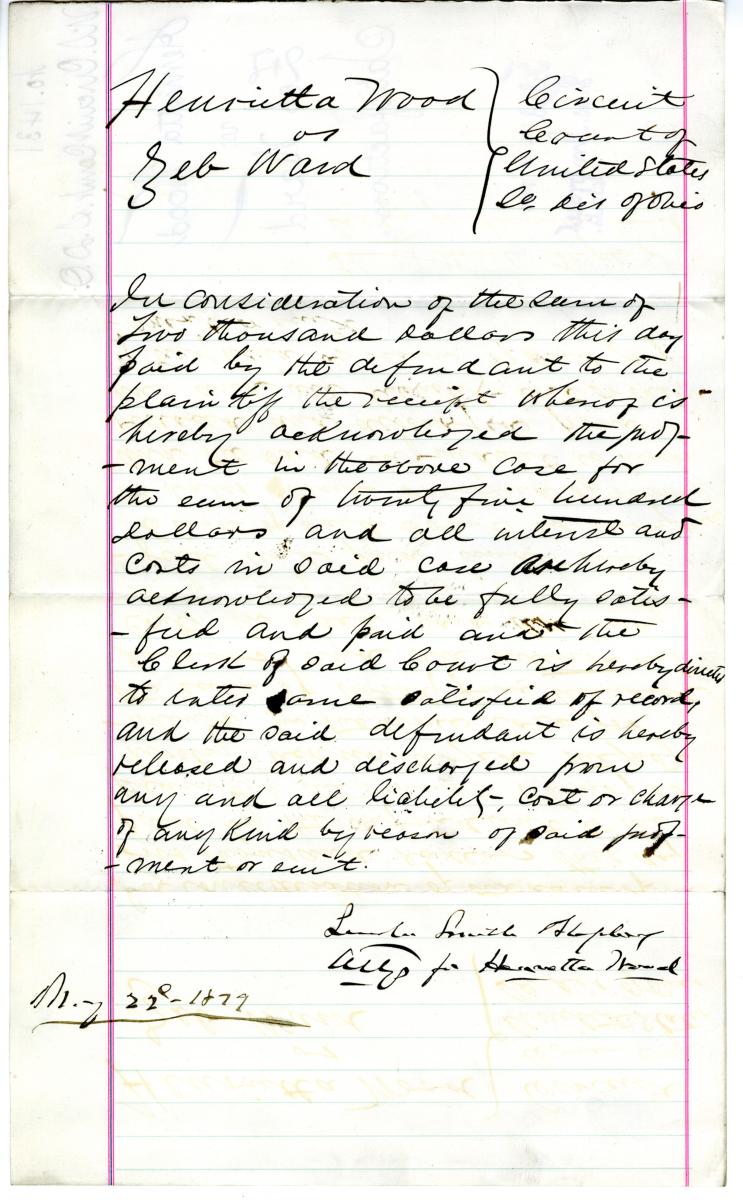 Henrietta Wood
vs
Zeb Ward
Circuit
Court of
United States
So. Dis of Ohio
In consideration of the sum of
Two thousand dollars this day
paid by the defendant to the
plaintiff the receipt whereof is
hereby acknowledged the judg-
-ment in the above case for
the sum of twenty five hundred
dollars and all interest and
costs in said case are hereby
acknowledged to be fully satis-
-fied and paid and the
Clerk of said Court is hereby directed
to enter same satisfied of record,
and the said defendant is hereby
released and discharged from
any and all liability, cost or charge
of any kind by reason of said judg-
-ment or suit.
Lincoln Smith &
Attys for Henrietta Wood
May 22d - 1879